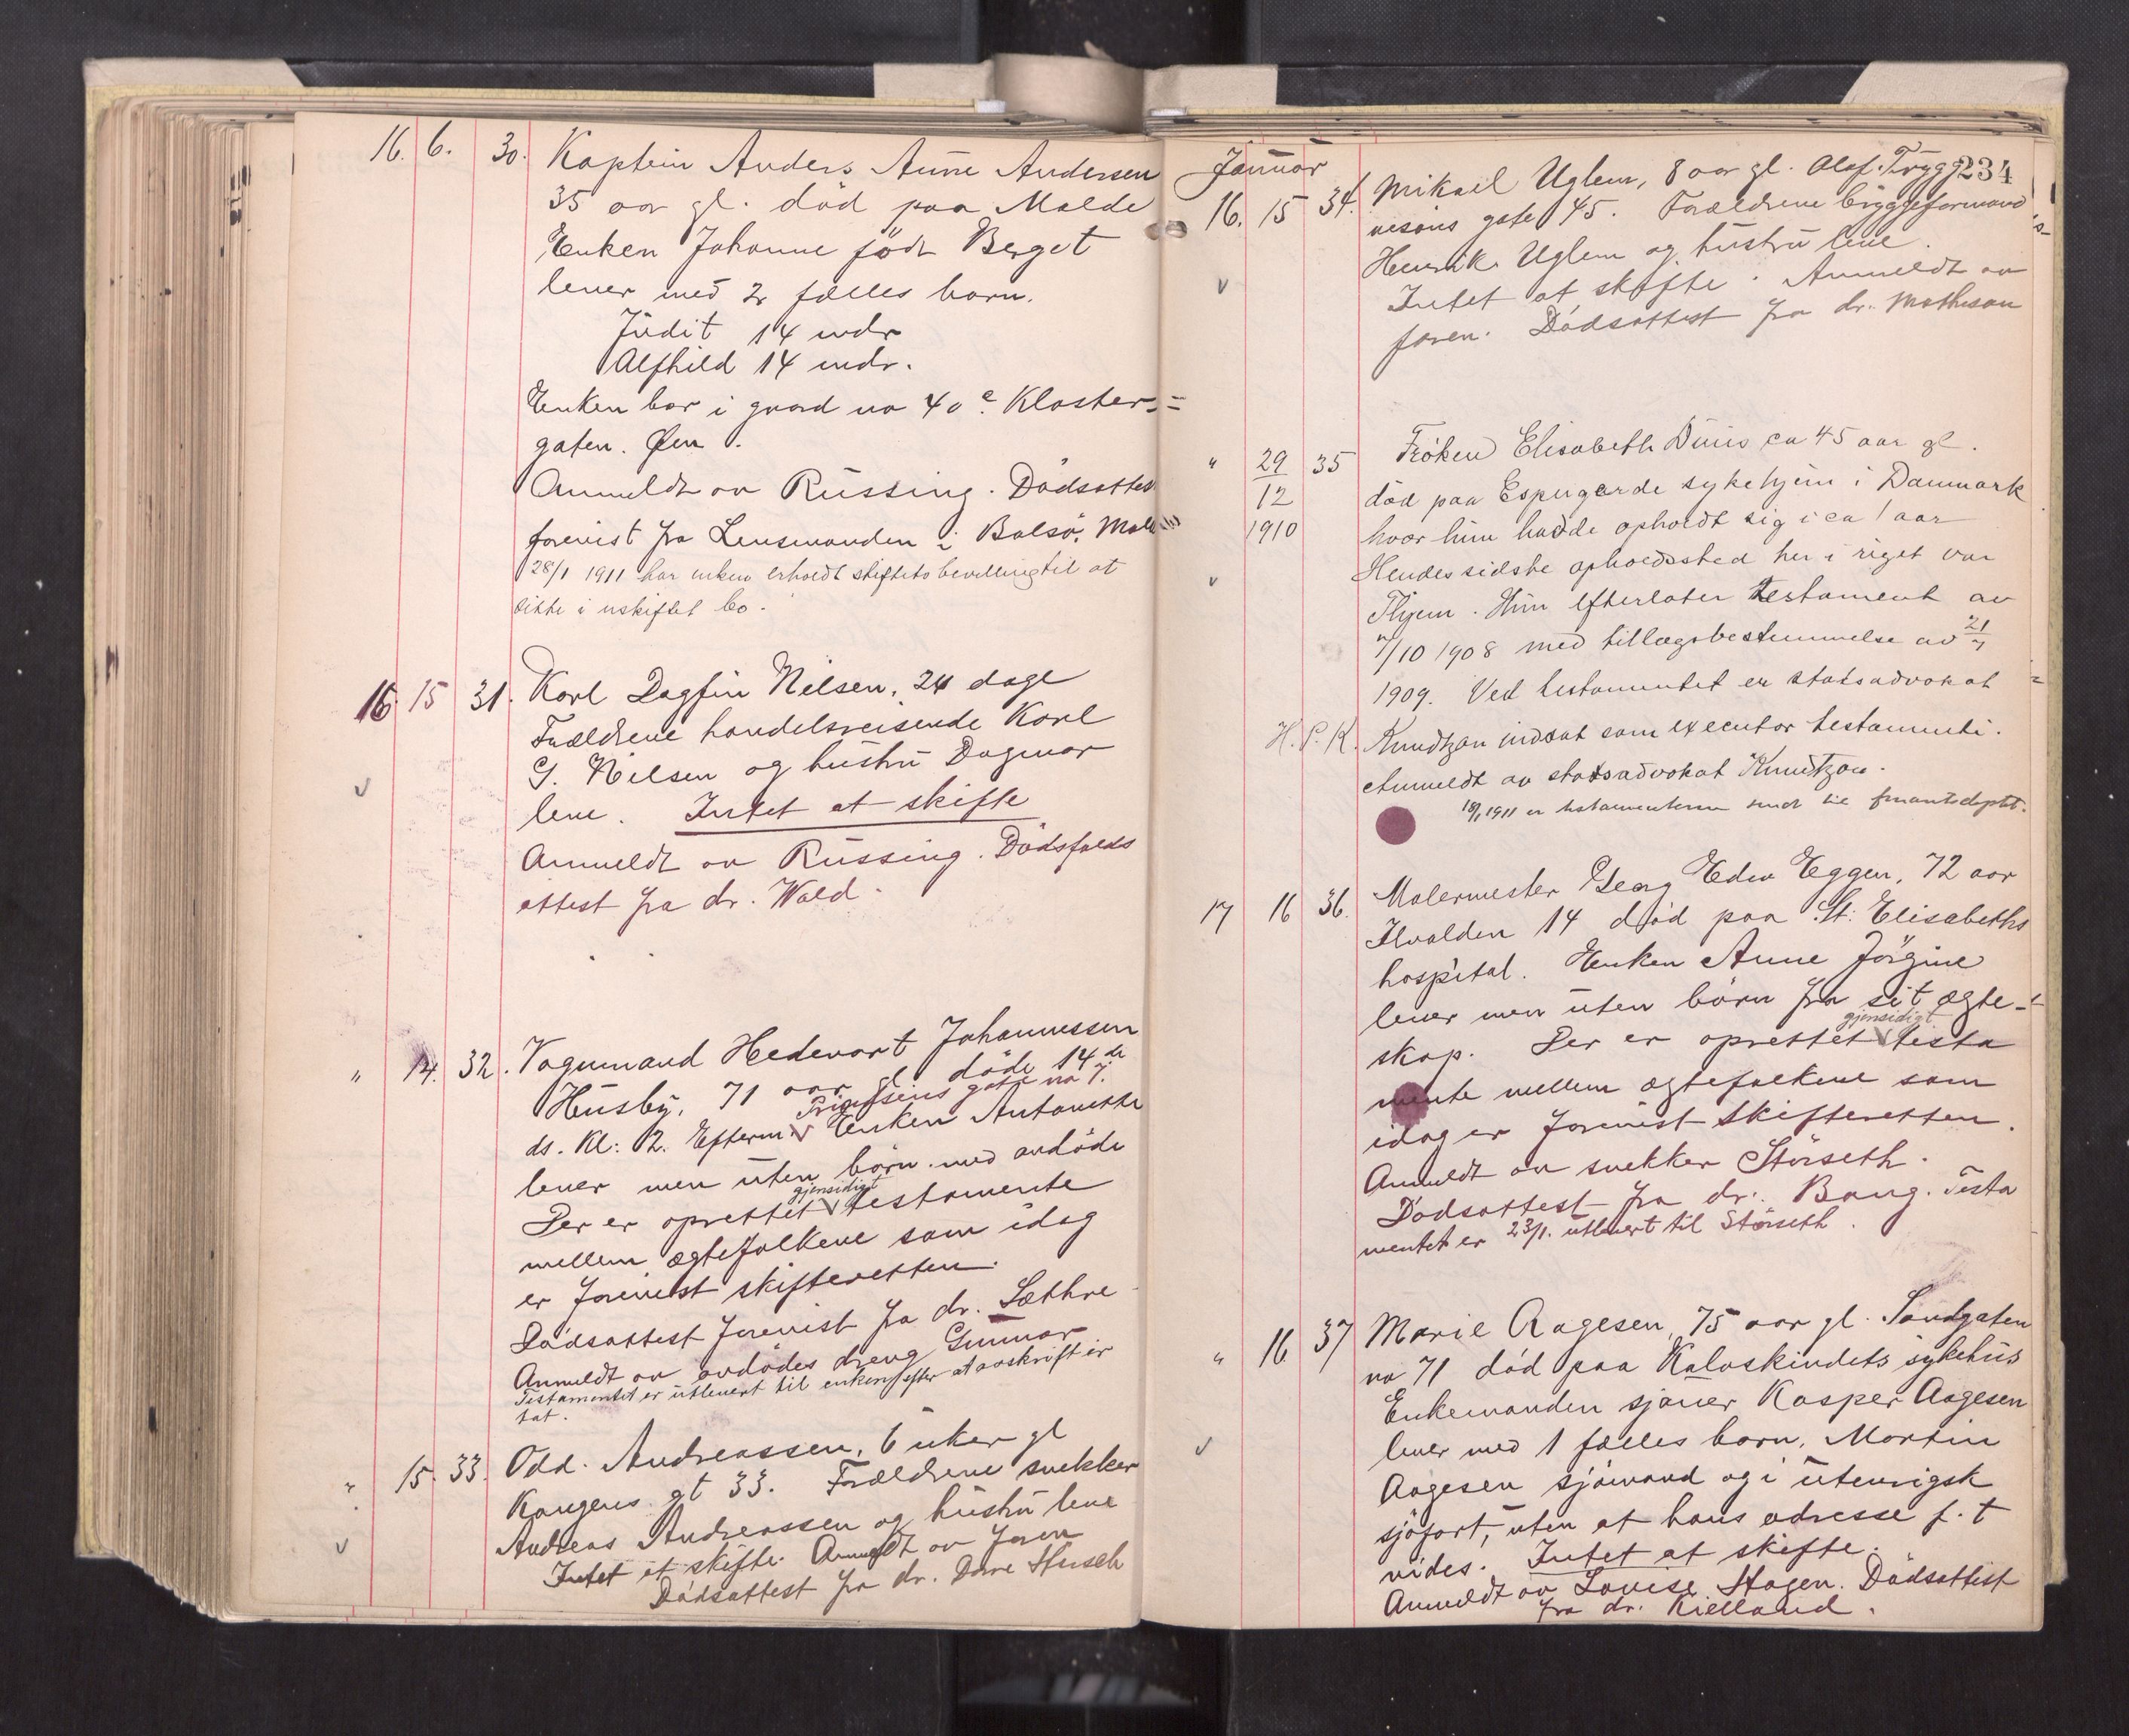 16. 6. 30. Kaptein Anders Aune Andersen
35 aar gl. död paa Molde
Enken Johanne födt Berget
lever med 2 fælles barn.
Judit 14 mdr
Alfhild 14 mdr.
Enken bor i gaard no 40 e. Kloster-
gaten. Øen.
Anmeldt av Russing. Dödsattest
forevist fra Lensmanden i Bolsö, Molde
28/1 1911 har enken erholdt skiftets bevilling til at
sitte i uskiftet bo.
16. 15 31. Karl Dagfin Nilsen, 24 dage
Forældrene handelsreisende Karl
G. Nilsen og hustru Dagmar
leve. Intet at skifte
Anmeldt av Russing. Dödsfalds
attest fra dr. Wald.
" 14. 32. Vognmand Hedevart Johannessen
Husby, 71 aar gl döde 14de
Prinsens gate no 7.
ds. Kl: 2. Efterm. Enken Antonette
lever men uten börn med avdöde
gjensidigt
Der er oprettet testamente
mellem ægtefolkene som idag
er forevist skifteretten.
Dödsattest forevist fra dr. Sæthre
Anmeldt av avdödes dreng Gunnar
Testamentet er utlevert til enken efter at avskrift er
tat.
" 15. 33. Odd. Andreassen, 6 uker gl
Kongens gt 33. Forældrene snekker
Andreas Andreassen og hustru leve
Intet at skifte. Anmeldt av faren
Dödsattest fra dr. Huseh
Januar
234
16. 15 34. Mikael Uglem, 8 aar gl. Olaf Trygg-
vesöns gate 45. Forældrene bryggeformand
Henrik Uglem og hustru leve.
Intet at skifte. Anmeldt av
faren. Dödsattest fra dr. Matheson
" 29/12 1910 35 Fröken Elisabeth Duus ca 45 aar gl.
död paa Espergærde sykehjem i Danmark
hvor hun hadde opholdt sig i ca 1 aar
Hendes sidste opholdssted her i riget var
Thjem. Hun efterlater testament av
7/10 1908 med tillægsbestemmelse av 21/7
1909. Ved testamentet er statsadvokat
H. P. K. Knudtzon indsat som executor testamenti.
Anmeldt av statsadvokat Knudtzon.
18/1 1911 er testamenterne sendt til finantsdeptet.
17 16 36. Malermester Georg Edv Eggen, 72 aar
Ilvolden 14 död paa St: Elisabeths
hospital. Enken Anne Jörgine
lever men uten börn fra sit ægte-
gjensidigt
skap. Der er oprettet testa
mente mellem ægtefolkene som
idag er forevist skifteretten.
Anmeldt av snekker Störseth.
Dödsattest fra dr. Bang. Testa
mentet er 23/1. utlevert til Störseth.
" 16. 37 Marie Aagesen, 75 aar gl. Sandgaten
no 71 död paa Kalvskindets sykehus
Enkemanden sjauer Kasper Aagesen
lever med 1 fælles barn, Martin
Aagesen sjömand og i utenrigsk
sjöfart, uten at hans adresse f. t
vides. Intet at skifte.
Anmeldt av Lovise Hagen. Dödsattest
fra dr. Kielland.